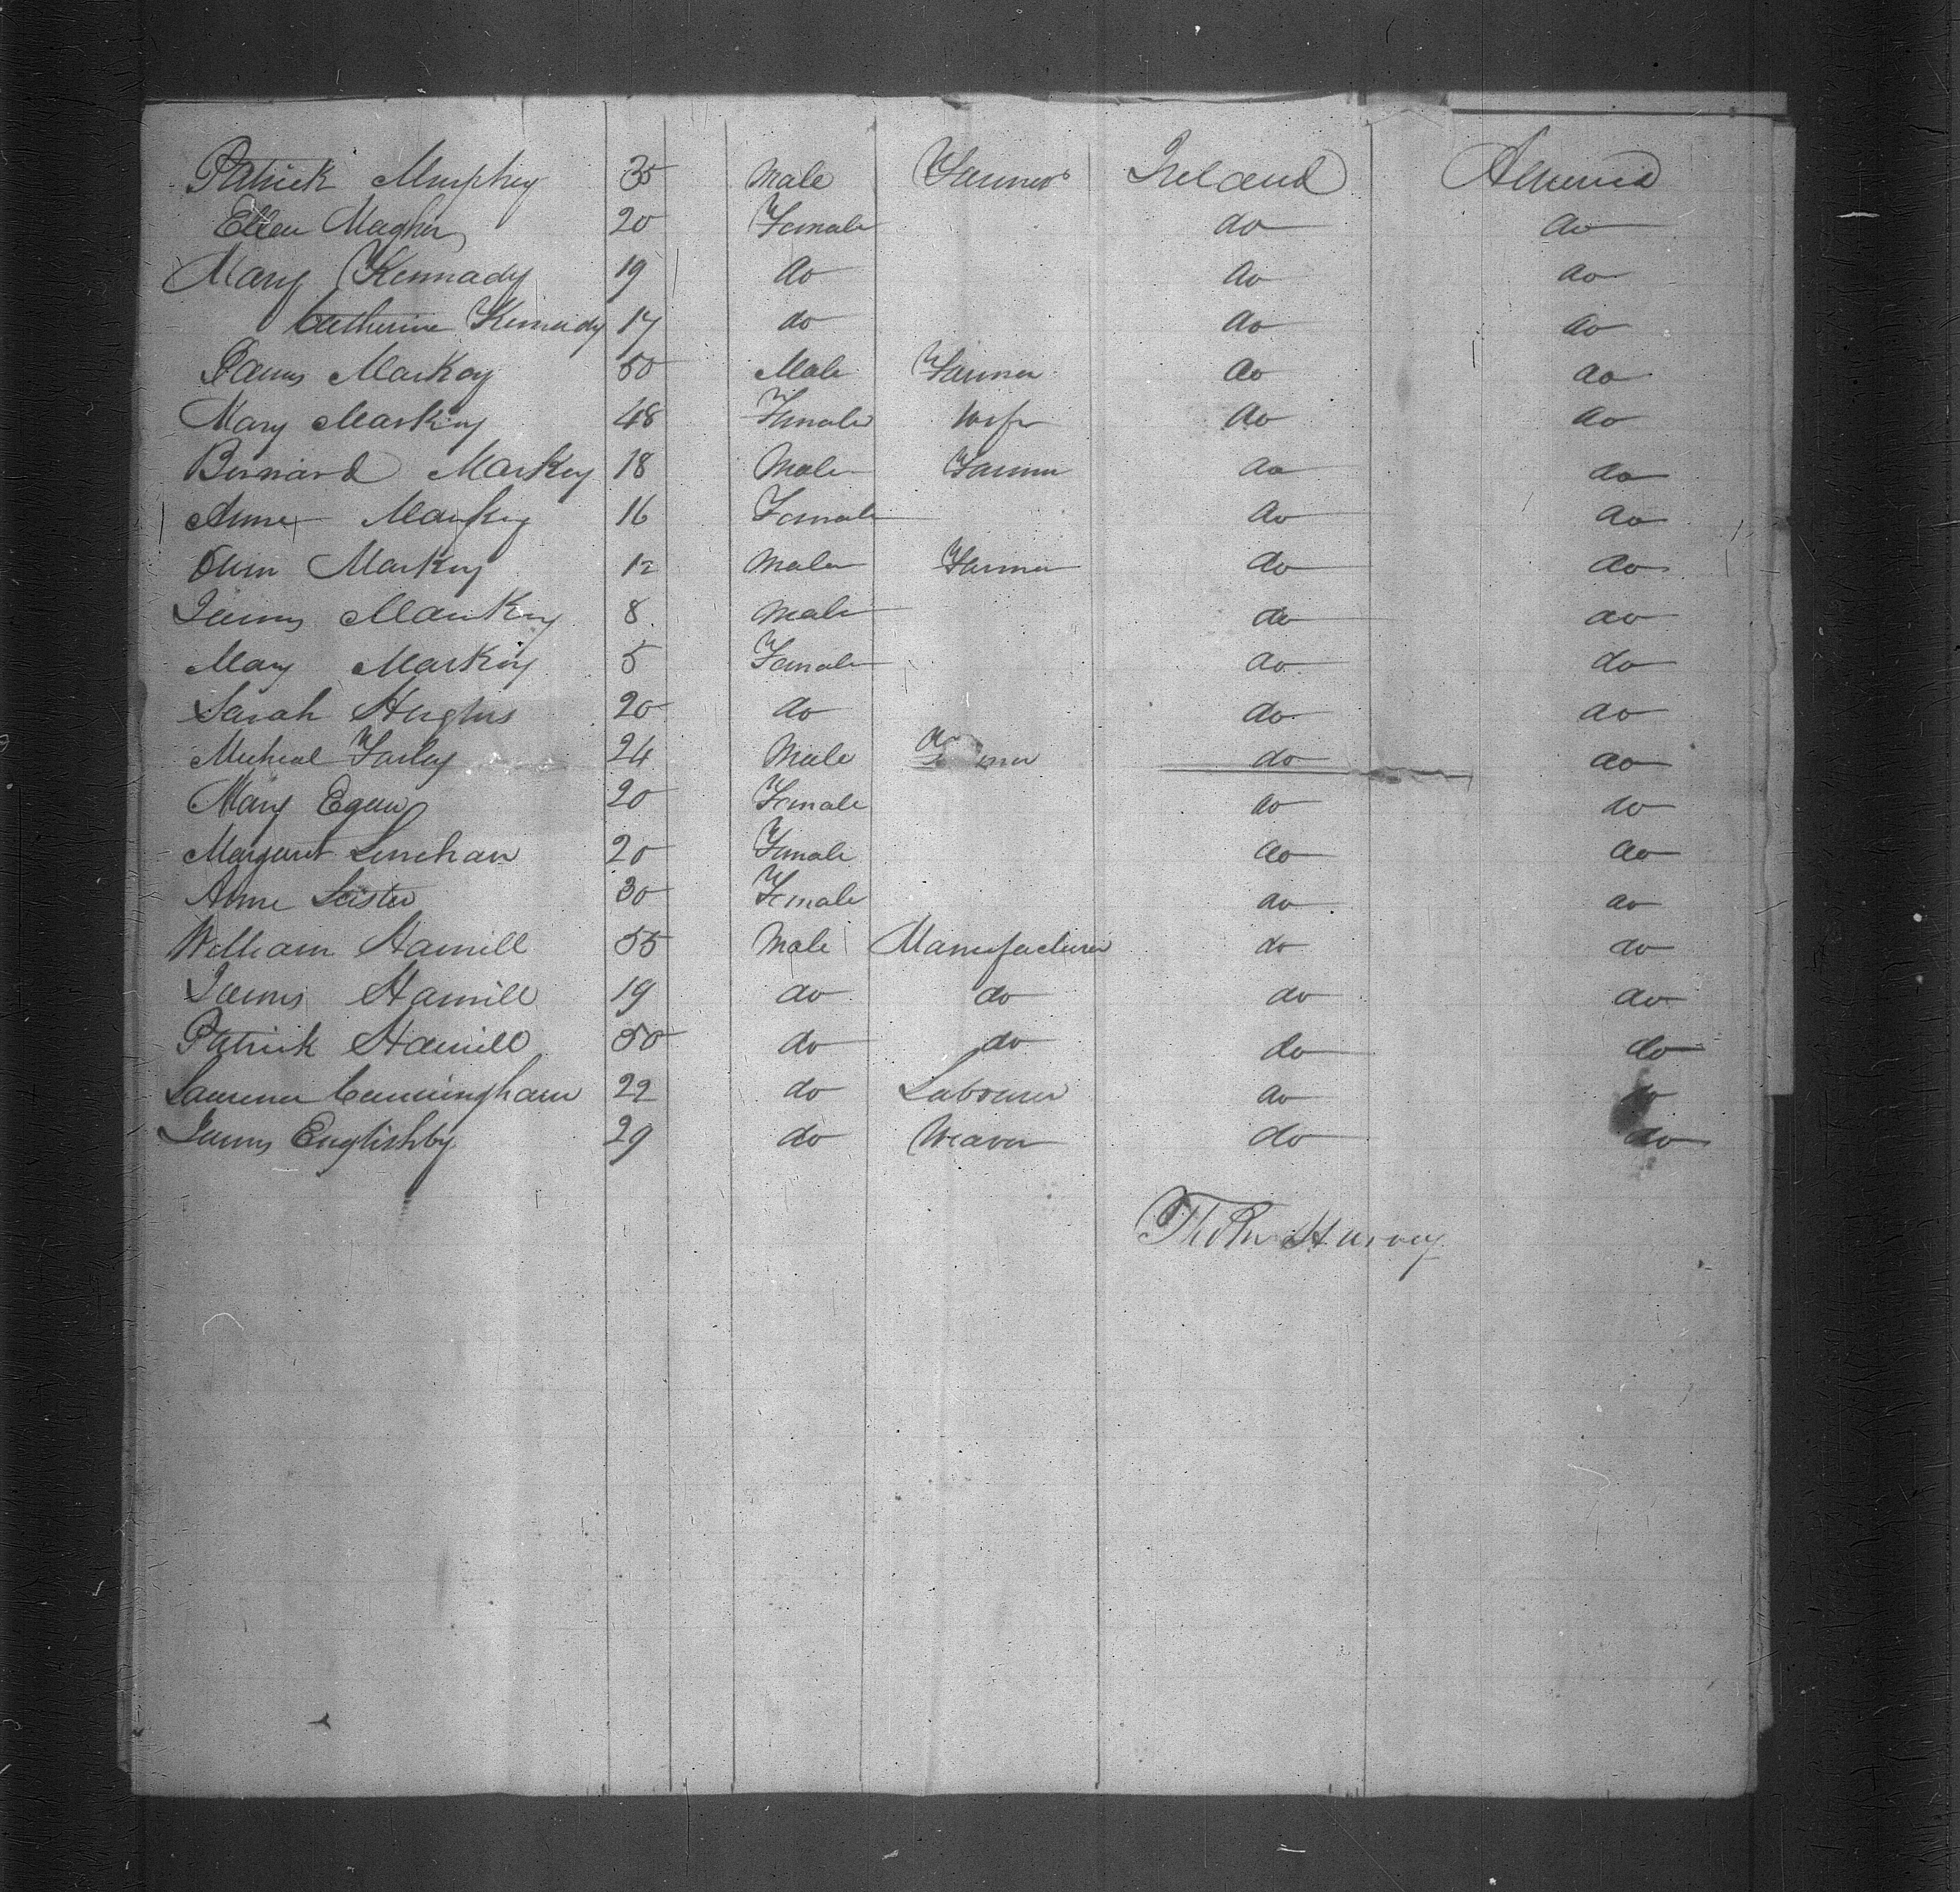 Patrick Murphy 35 Male Farmer Ireland America
Ellen Magher 20 Female do do
Mary Kennady 19 do do do
Catherine Kennedy 17 do do do
James Markey 50 Male Farmer do do
Mary Markey 48 Female Wife do do
Bernard Markey 18 Male Farmer do do
Anne Markey 16 Female do do
Owen Markey 12 Male Farmer do do
James Markey 8 Male do do
Mary Markey 5 Female do do
Sarah Hughs 20 do do do
Micheal Farley 24 Male do do
Mary Egan 20 Female do do
Margaret Linehan 20 Female do do
Anne 30 Female do do
William Hamill 55 Male Manufacturer do do
James Hamill 19 do do do do
Patrick Hamill 50 do do do do
Laurence Cunningham 22 do Labourer do do
James Englishby 29 do Weaver do do
Harvey